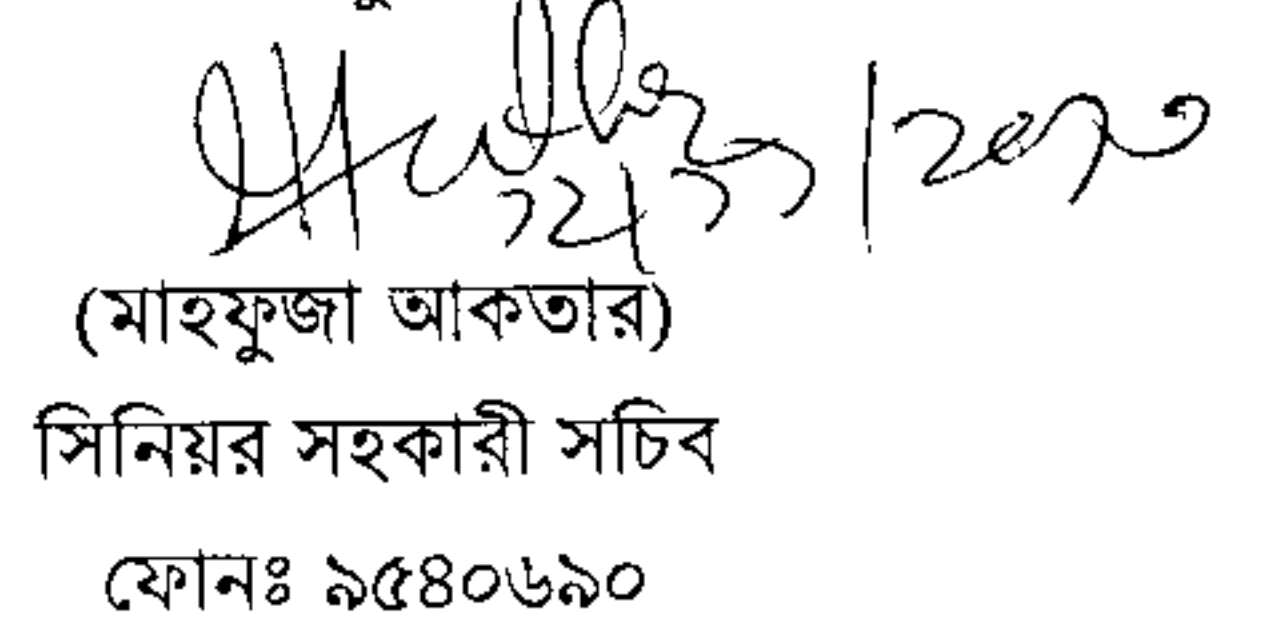 (মাহফুজা আকতার)
সিনিয়র সহকারী সচিব
ফোনঃ ৯৫৪০৬৯০